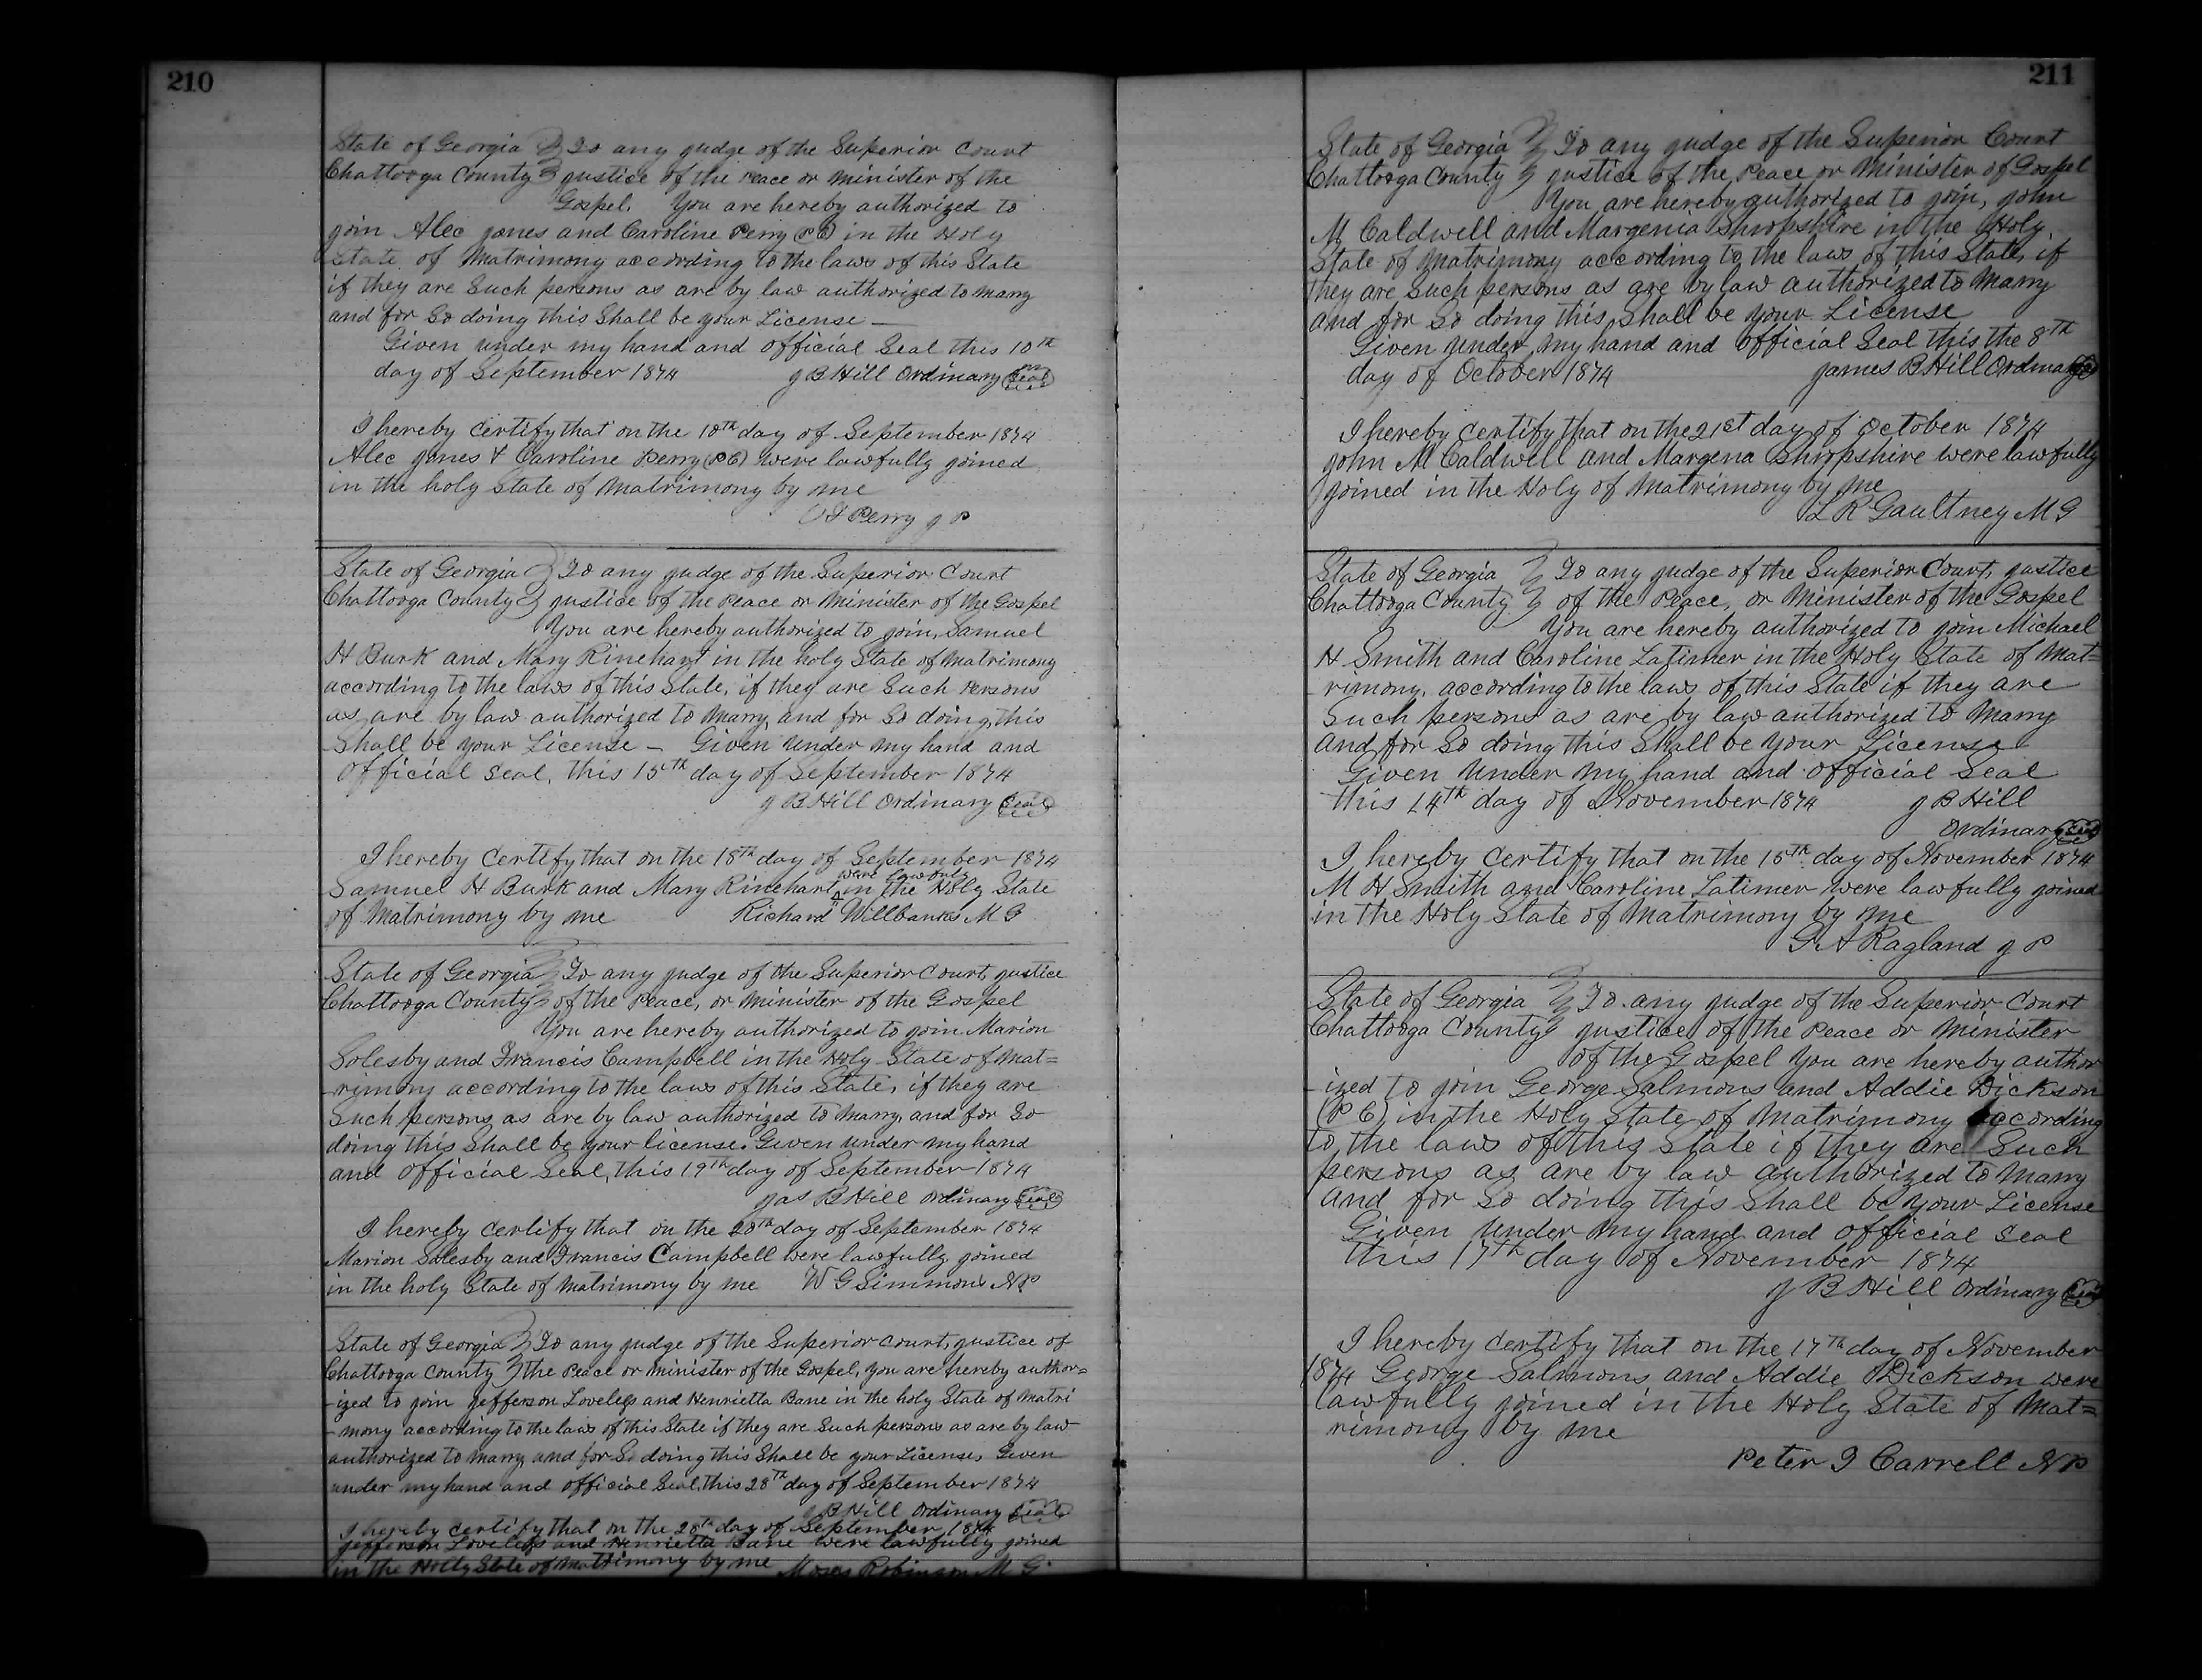 210
State of Georgia } To any judge of the Superior Court
Chattooga County } justice of the Peace or Minister of the
Gospel. You are hereby authorized to
join Alec Jones and Caroline Perry (P C) in the Holy
State of Matrimony according to the laws of this State
if they are Such persons as are by law authorized to marry
and for So doing this Shall be your License —
Given under my hand and official Seal this 10th
day of September 1874 J B Hill Ordinary Seal
I hereby Certify that on the 10th day of September 1874
Alec Jones & Caroline Perry (P C) were lawfully joined
in the holy State of Matrimony by me
Perry J P
State of Georgia } To any judge of the Superior Court
Chattooga County } justice of the Peace or Minister of the Gospel
You are hereby authorized to join, Samuel
H Burk and Mary Rinehart in the holy State of Matrimony
according to the laws of this State, if they are Such Persons
as are by law authorized to Marry and for So doing this
Shall be your License — Given under my hand and
official Seal, this 15th day of September 1874
J B Hill Ordinary Seal
I hereby Certify that on the 18th day of September 1874
Samuel H Burk and Mary Rinehart were lawfuly in the Holy State
of Matrimony by me Richard Willbanks M G
State of Georgia } To any judge of the Superior Court, justice
Chattooga County } of the Peace, or Minister of the Gospel
You are hereby authorized to join Marion
Solesby and Francis Campbell in the Holy State of Mat=
-rimony according to the laws of this State, if they are
Such persons as are by law authorized to Marry, and for So
doing this Shall be your license. Given under my hand
and official Seal, this 19th day of September 1874
Jas B Hill Ordinary Seal
I hereby certify that on the 20th day of September 1874
Marion Solesby and Francis Campbell were lawfully joined
in the holy State of Matrimony by me W G Simmons N P
State of Georgia } To any judge of the Superior Court, justice of
Chattooga County } the Peace or minister of the Gospel, you are hereby author=
-ized to join Jefferson Loveless and Henrietta Bane in the holy State of Matri
-mony according to the laws of this State if they are Such persons as are by law
authorized to marry and for So doing this Shall be your License, Given
under my hand and official Seal, this 28th day of September 1874
J B Hill Ordinary Seal
I hereby certify that on the 28th day of September 1874
Jefferson Loveless and Henrietta Bane were lawfully joined
in the Holy State of Matrimony by me Moses Robinson M G
211
State of Georgia } To any judge of the Superior Court
Chattooga County } justice of the Peace or Minister of Gospel
You are hereby authorized to join, John
M Caldwell and Margenia Shropshire in the Holy
State of Matrimony according to the laws of this State, if
they are Such persons as are by law authorized to Marry
and for So doing this Shall be your License
Given under my hand and official Seal this the 8th
day of October 1874 James B Hill Ordinary
I hereby Certify that on the 21st day of October 1874
John M Caldwell and Margena Shropshire were lawfully
joined in the Holy of Matrimony by me
L R Gaultney M G
State of Georgia } To any judge of the Superior Court, justice
Chattooga County } of the Peace, or Minister of the Gospel
You are hereby authorized to join Michael
H Smith and Caroline Latimer in the Holy State of Mat=
-rimony, according to the laws of this State if they are
Such persons as are by law authorized to Marry
and for So doing this Shall be your License
Given under my hand and official Seal
this 14th day of November 1874 J B Hill
Ordinary Seal
I hereby Certify that on the 15th day of November 1874
M H Smith and Caroline Latimer were lawfully joined
in the Holy State of Matrimony by me
G A Ragland J P
State of Georgia } To any judge of the Superior Court
Chattooga County } justice of the Peace or Minister
of the Gospel You are hereby author
-ized to join George Salmons and Addie Dickson
(P C) in the Holy State of Matrimony according
to the laws of this State if they are Such
persons as are by law authorized to Marry
and for So doing this Shall be your License
Given under my hand and official Seal
this 17th day of November 1874
J B Hill Ordinary Seal
I hereby certify that on the 17th day of November
1874 George Salmons and Addie Dickson were
lawfully joined in the Holy State of Mat=
rimony by me
Peter J Carrell N P